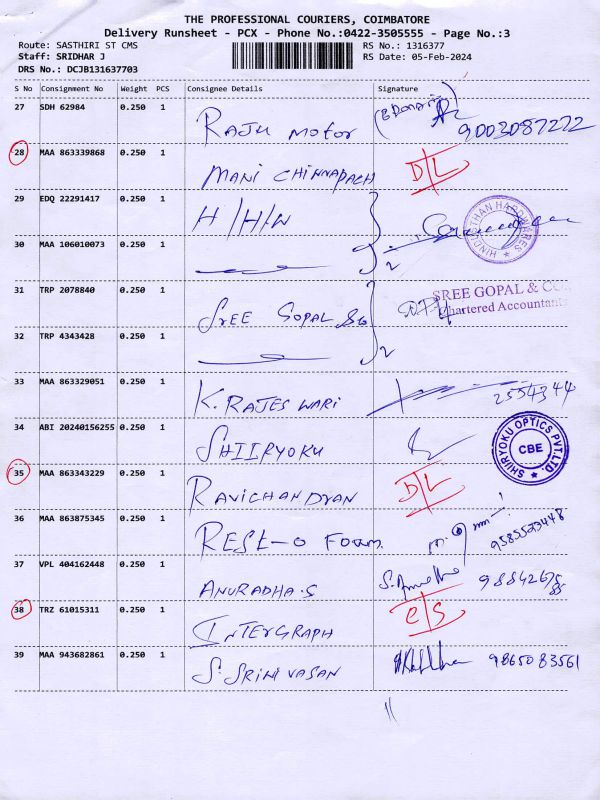 THE PROFESSIONAL COURIERS, COIMBATORE
Delivery Runsheet - PCX - Phone No.:0422-3505555 - Page No.:3
Route: SASTHIRI ST CMS RS No.: 1316377
Staff: SRIDHAR J RS Date: 05-Feb-2024
DRS No.: DCJB131637703
S No Consignment No Weight PCS Consignee Details Signature
27 SDH 62984 0.250 1 RAJU MOTOR 9003087272
28 MAA 863339868 0.250 1 MANI CHINNAPACH D/L
29 EDQ 22291417 0.250 1 H/H/W HINDUSTHAN HARDWARES
30 MAA 106010073 0.250 1 2
31 TRP 2078840 0.250 1 SREE GOPAL &Co SREE GOPAL & CO.
Chartered Accountants
32 TRP 4343428 0.250 1 2
33 MAA 863329051 0.250 1 K. RAJESWARI 2554344
34 ABI 20240156255 0.250 1 SHIIRYOKU SHIIRYOKU OPTICS PVT.LTD. CBE
35 MAA 863343229 0.250 1 RAVICHANDRAN D/L
36 MAA 863875345 0.250 1 REST-O FOAM 9585523448
37 VPL 404162448 0.250 1 ANURADHA.S
38 TRZ 61015311 0.250 1 INTERGRAPH C/S
39 MAA 943682861 0.250 1 S. SRINIVASAN 9865083561